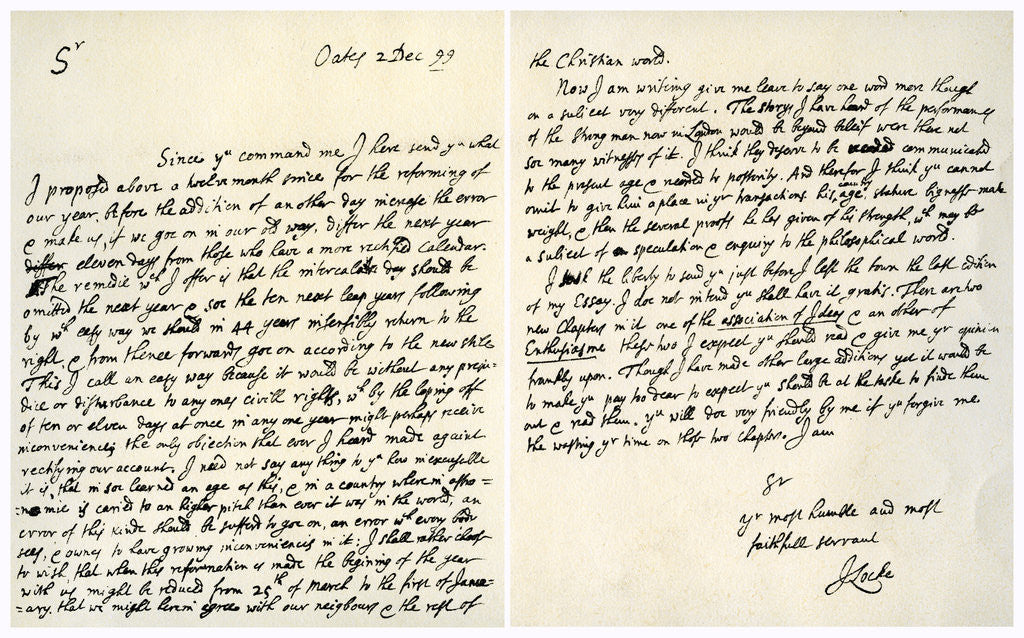 Sr
Oates 2 Dec 99
Since yu command me I here send yu what
I proposed above a twelve month since for the reforming of
our year, before the addition of an other day increase the error
& make us, if we goe on in our old way, differ the next year
differ eleven days from those who have a more rectified Calendar.
The remedie wch I offer is that the intercalate day should be
omitted the next year & soe the ten next leap years following
by wch easy way we should in 44 years insensibly return to the
right, & from thence forwards goe on according to the new stile
This I call an easy way because it would be without any preju=
dice or disturbance to any ones civill rights, wch by the loping off
of ten or eleven days at once in any one year might perhaps receive
inconvenience, the only objection that ever I heard made against
rectifying our account. I need not say any thing to yu how inexcusable
it is, that in soe learned an age as this, & in a country wherein astro=
=nomie is caried to an higher pitch than ever it was in the world, an
error of this kinde should be sufferd to goe on, an error wch every body
sees, & ownes to have growing inconveniencies in it; I shall rather choose
to wish that when this reformation is made the begining of the year
with us might be reduced from 25th of March to the first of Janu=
=ary, that we might herein agree with our neighbours & the rest of
the Christian world.
Now I am writing give me leave to say one word more though
on a subiect very different. The storys I have heard of the performances
of the strong man now in London would be beyond beleif were there not
soe many witnesses of it. I think they deserve to be communicated
to the present age & recorded to posterity. And therefor I think yu cannot
omit to give him a place in yr transactions his country age stature bigness make
weight, & then the several proofs he has given of his strength, wch may be
a subiect of speculation & enquiry to the philosophical world.
I took the liberty to send yu just before I left the town the last edition
of my Essay. I doe not intend yu shall have it gratis. There are two
new Chapters in it one of the association of Ideas & an other of
Enthusiasme these two I expect yu should read & give me yr opinion
frankly upon. Though I have made other large additions yet it would be
to make yu pay too dear to expect yu should be at the taske to finde them
out & read them. yu will doe very friendly by me if yu forgive me
the wasting yr time on those two chapters. I am
Sr
yr most humble and most
faithfull servant
J Locke